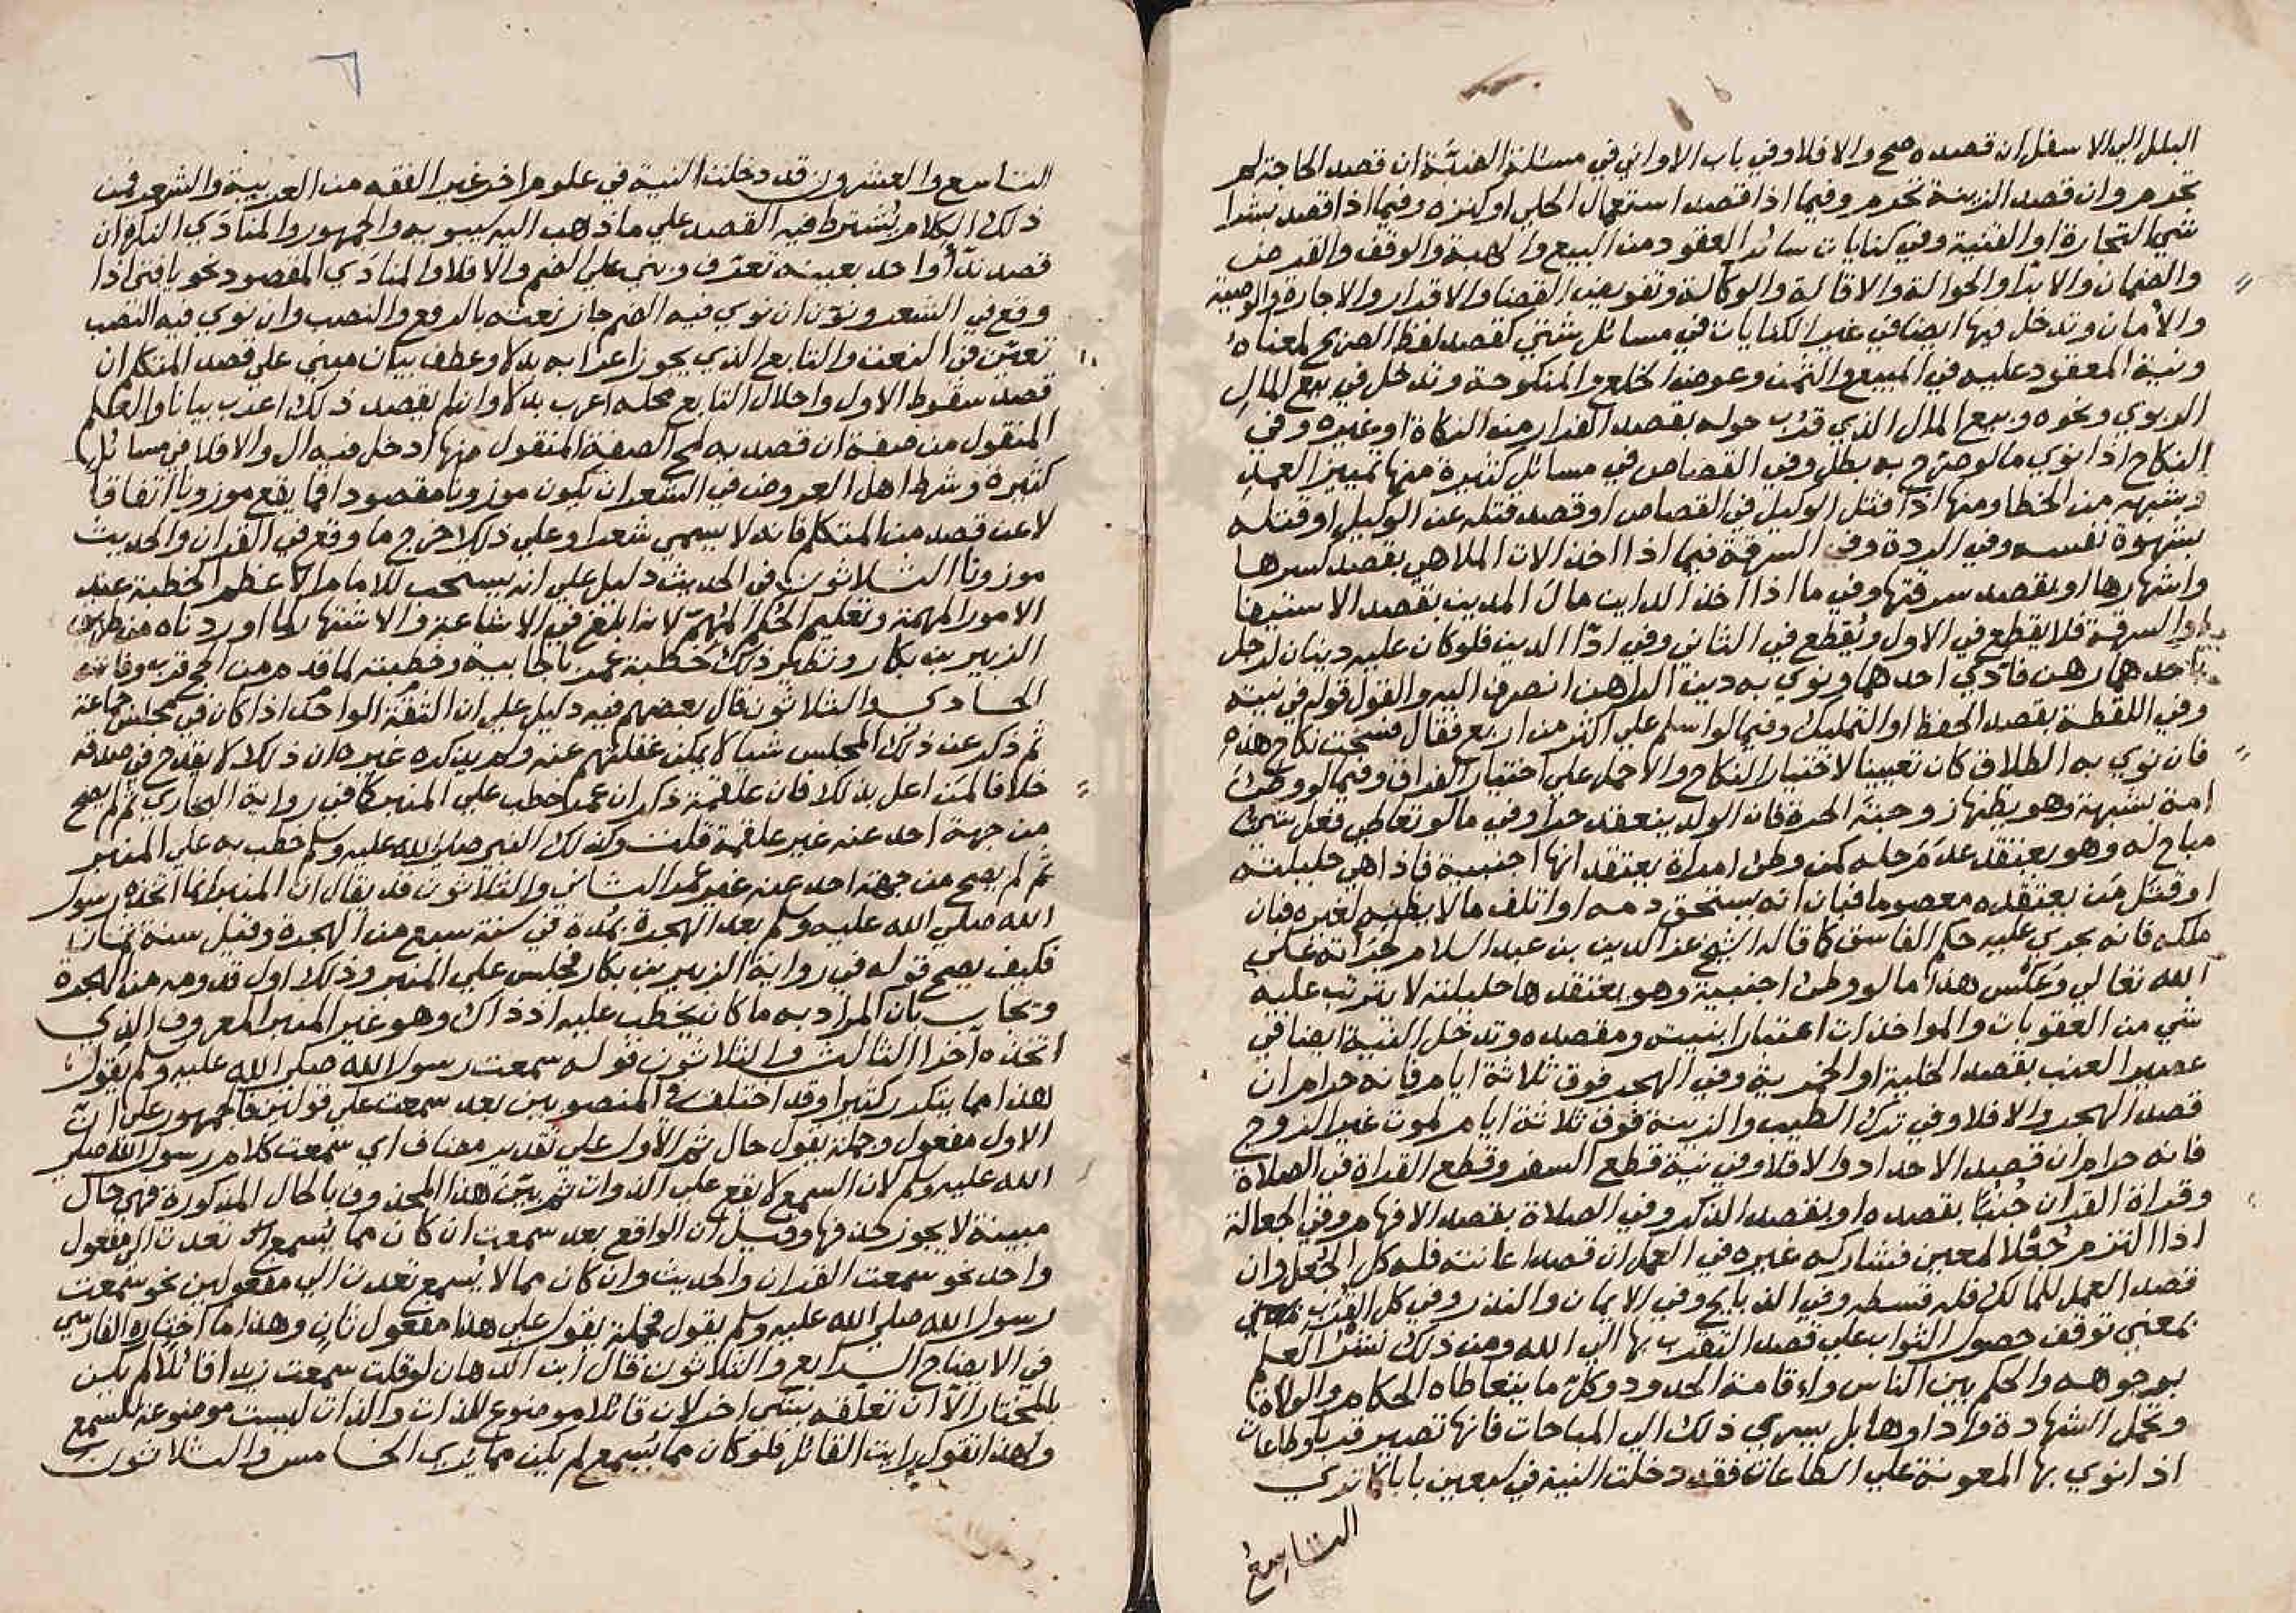 البلل الي الاسفل ان قصده صح والا فلا وفي باب الاواني في مسئلة الضبة ان قصد الحاجة لم
تحرم وان قصد الزينة تحرم وفيما اذا قصد استعمال الحلي او كنزه وفيما اذا قصد بشرا
شي التجارة او القنية وفي كنايات سائر العقود من البيع والهبة والوقف والقرض
والضمان والابرا والحوالة والاقالة والوكالة وتفويض القضا والاقرار والاجارة والوصية
والأمان وتدخل فيها ايضا في غير الكنايات في مسائل شتي كقصد لفظ الصريح لمعناه
ونية المعقود عليه في المبيع والثمن وعوض الخلع والمنكوحة وتدخل في بيع المال
الربوي ونحوه وبيع المال الذي قرب حوله بقصد الفرار من الزكاة او غيره وفي
النكاح اذا نوي ما لو صرح به بطل وفي القصاص في مسائل كثيرة منها تمييز العمد
وشبهه من الخطا ومنها اذا قتل الوكيل في القصاص او قصد قتله عن الوكيل او قتله
بشهوة نفسه وفي الردة وفي السرقة فيما اذا اخذ الات الملاهي بقصد كسرها
واشهارها او بقصد سرقتها وفي ما اذا اخذ الداين مال المدين بقصد الاستيفا
او السرقة فلا يقطع في الاول ويقطع في الثاني وفي ادّا الدين فلو كان عليه دينان لرجل
باحدهما رهن فادّي احدهما ونوي به دين الرهن انصرف اليه والقول قوله في نيته
وفي اللقطة بقصد الحفظ او التمليك وفيما لو اسلم علي اكثر من اربع فقال فسخت نكاح هذه
فان نوي به الطلاق كان تعيينا لاختيار النكاح والا حمل علي اختيار الفراق وفيما لو وطئ
امة بشبهة وهو يظنها زوجته الحرة فان الولد ينعقد حرا وفي ما لو تعاطي فعل شئ
مباح له وهو يعتقد عدم حله كمن وطئ امراة يعتقد انها اجنبية فاذا هي حليلته
او قتل من يعتقده معصوما فبان انه يستحق دمه او اتلف ما لا يظنه لغيره فبان
ملكه فانه يجري عليه حكم الفاسق كما قاله الشيخ عز الدين بن عبد السلام جراته علي
الله تعالي وعكس هذا ما لو وطئ اجنبية وهو يعتقدها حليلته لا يترتب عليه
شي من العقوبات والمواخذات اعتبارا بنيته ومقصده وتدخل النية ايضا في
عصير العنب بقصد الخلية او الخمرية وفي الهجر فوق ثلاثة ايام فانه حرام ان
قصد الهجر والا فلا وفي ترك الطيب والزينة فوق ثلاثة ايام لموت غير الزوج
فانه حرام ان قصد الاحداد والا فلا وفي نية قطع السفر وقطع القراة في الصلاة
وقراة القران جُنُبًا بقصده او بقصد الذكر وفي الصلاة بقصد الافهام وفي الجعالة
اذا التزم جُعْلا لمعين فشاركه غيره في العمل ان قصد اعانته فله كل الجعل وان
قصد العمل للمالك فله قسطه وفي الذبايح وفي الايمان والنذر وفي كل القُرَب
بمعني توقف حصول الثواب علي قصد التقرب بها الي الله ومن ذلك نَشْرُ العلم
بوجوهه والحكم بين الناس واقامة الحدود وكل ما يتعاطاه الحكام والولاة
وتحمل الشهادة واداوها بل يسري ذلك الي المباحات فانها تصير قربا وطاعات
اذا نوي بها المعونة علي الطاعات فقد دخلت النية في سبعين بابا كما نري
التاسع
التاسع والعشرون قد دخلت النية في علوم اخر غير الفقه من العربية والشعر فمن
ذلك الكلام يُشترط فيه القصد علي ما ذهب اليه سيبويه والجمهور والمنادَي النكرة ان
قصد ندأ واحد بعينه تعرّف وبني علي الضم والا فلا والمنادَي المقصود نحو يا فتي اذا
وقع في الشعر ونوّن ان نوي فيه الضم جاز نعته بالرفع والنصب وان نوي فيه النصب
تعيّن في النعت والتابع الذي يجوز اعرابه بدلا وعطف بيان مبني علي قصد المتكلم ان
قصد سقوط الاول واحلال التابع محله اعرب بدلا وان لم يقصد ذلك اعرب بيانا والعلم
المنقول من صفة ان قصد به لمح الصفة المنقول منها ادخل فيه ال والا فلا في مسائل
كثيرة وشرط اهل العروض في الشعر ان يكون موزونا مقصودا فما يقع موزونا اتفاقا
لا عن قصد من المتكلم فانه لا يسمي شعرا وعلي ذلك خرج ما وقع في القران والحديث
موزونا الثلاثون في الحديث دليل علي انه يستحب للامام الاعظم الخطبة عند
الامور المهمة وتعليم الحُكم المُهمّ لانه ابلغ في الاشاعة والاشتهار كما اوردناه من طريق
الزبير بن بكار ونظير ذلك خطبة عمر بالجابية وخطبته لما قدم من الحج قرب وفاته
الحادي والثلاثون قال بعضهم فيه دليل علي ان الثقة الواحد اذا كان في مجلس جماعة
ثم ذكر عن ذلك المجلس شيا لا يمكن غفلتهم عنه ولم يذكره غيره ان ذلك لا يقدح في صدقه
خلافا لمن اعل بذلك فان علقمة ذكر ان عمر خطب علي المنبر كما في رواية البخاري ثم لم يصح
من جهة احد عنه غير علقمة قلت وكذلك النبي صلي الله عليه وسلم خطب به علي المنبر
ثم لم يصح من جهة احد عنه غير عمر الثاني والثلاثون قد يقال ان المنبر انما اتخذه رسول
الله صلي الله عليه وسلم بعد الهجرة بمُدة في سنة سبع من الهجرة وقيل سنة ثمان
فكيف يصح قوله في رواية الزبير بن بكار فجلس علي المنبر وذلك اول قدومه من الهجرة
ويجاب بان المراد به ما كان يخطب عليه اذ ذاك وهو غير المنبر المعروف الذي
اتخذه آخرا الثالث والثلاثون قوله سمعت رسول الله صلي الله عليه وسلم يقول
هذا مما يتكرر كثيرا وقد اختلف في المنصوبين بعد سمعت علي قولين فالجمهور علي ان
الاول مفعول وجملة يقول حال ثم الأول علي تقدير مضاف اي سمعت كلام رسول الله صلي
الله عليه وسلم لان السمع لا يقع علي الذوات ثم بيّن هذا المحذوف بالحال المذكورة فهي حال
مبينة لا يجوز حذفها وقيل ان الواقع بعد سمعت ان كان مما يُسمع تعدت الي مفعول
واحد نحو سمعت القران والحديث وان كان مما لا يُسمع تعدت الي مفعولين نحو سمعت
رسول الله صلي الله عليه وسلم يقول فجملة يقول علي هذا مفعول ثان وهذا ما اختاره الفارسي
في الايضاح الرابع والثلاثون قال ابن الدهان لو قلت سمعت زيدا قائلا لم يكن
بالمختار الا ان تعلقه بشي اخر لان قائلا موضوع للذات والذات ليست موضوعة للسمع
ولهذا تقول رايت القائل فلو كان مما يُسمع لم يكن مما يُري الخامس والثلاثون